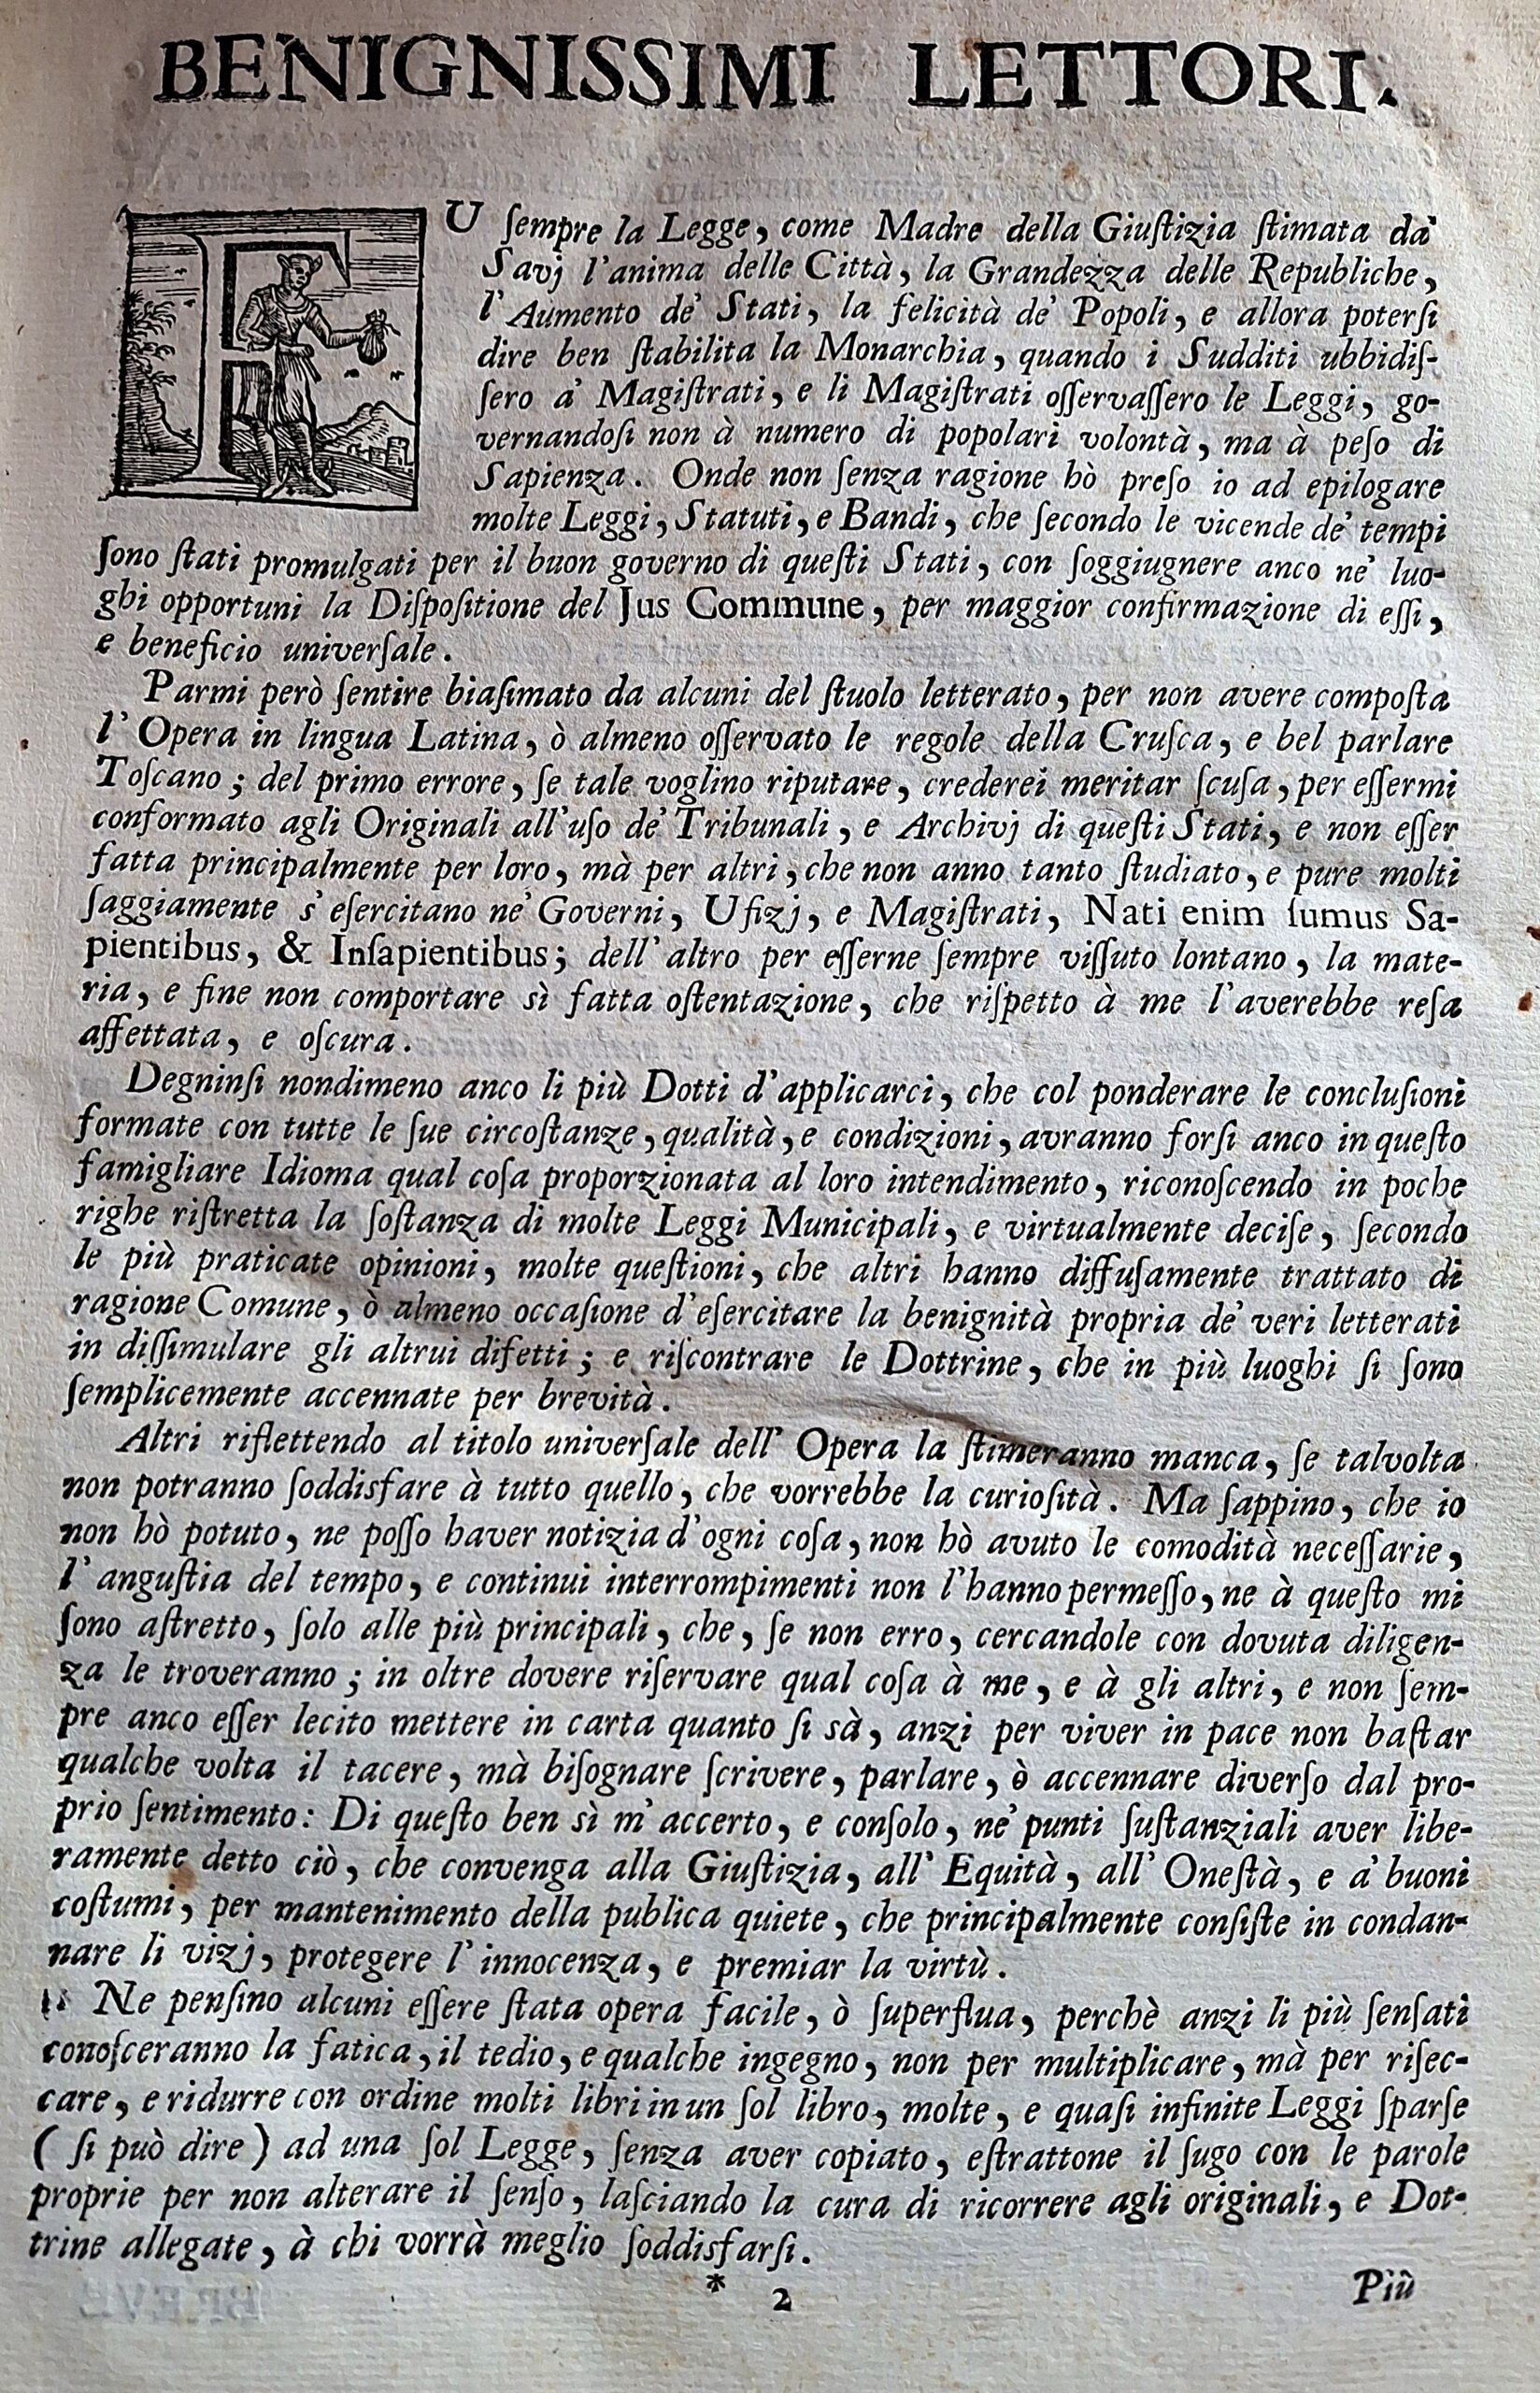 BENIGNISSIMI LETTORI.
FU ſempre la Legge, come Madre della Giuſtizia ſtimata da'
Savj l'anima delle Città, la Grandezza delle Republiche,
l'Aumento de' Stati, la felicità de' Popoli, e allora poterſi
dire ben ſtabilita la Monarchia, quando i Sudditi ubbidiſ-
ſero a' Magiſtrati, e li Magiſtrati oſſervaſſero le Leggi, go-
vernandoſi non à numero di popolari volontà, ma à peſo di
Sapienza. Onde non ſenza ragione hò preſo io ad epilogare
molte Leggi, Statuti, e Bandi, che ſecondo le vicende de' tempi
ſono ſtati promulgati per il buon governo di queſti Stati, con ſoggiugnere anco ne' luo-
ghi opportuni la Diſpoſitione del Jus Commune, per maggior confirmazione di eſſi,
e beneficio univerſale.
Parmi però ſentire biaſimato da alcuni del ſtuolo letterato, per non avere compoſta
l'Opera in lingua Latina, ò almeno oſſervato le regole della Cruſca, e bel parlare
Toſcano; del primo errore, ſe tale voglino riputare, crederei meritar ſcuſa, per eſſermi
conformato agli Originali all'uſo de' Tribunali, e Archivj di queſti Stati, e non eſſer
fatta principalmente per loro, mà per altri, che non anno tanto ſtudiato, e pure molti
ſaggiamente s'eſercitano ne' Governi, Ufizj, e Magiſtrati, Nati enim ſumus Sa-
pientibus, & Inſapientibus; dell'altro per eſſerne ſempre viſſuto lontano, la mate-
ria, e fine non comportare sì fatta oſtentazione, che riſpetto à me l'averebbe reſa
affettata, e oſcura.
Degninſi nondimeno anco li più Dotti d'applicarci, che col ponderare le concluſioni
formate con tutte le ſue circoſtanze, qualità, e condizioni, avranno forſi anco in queſto
famigliare Idioma qual coſa proporzionata al loro intendimento, riconoſcendo in poche
righe riſtretta la ſoſtanza di molte Leggi Municipali, e virtualmente deciſe, ſecondo
le più praticate opinioni, molte queſtioni, che altri hanno diffuſamente trattato di
ragione Comune, ò almeno occaſione d'eſercitare la benignità propria de' veri letterati
in diſſimulare gli altrui difetti; e riſcontrare le Dottrine, che in più luoghi ſi ſono
ſemplicemente accennate per brevità.
Altri riflettendo al titolo univerſale dell' Opera la ſtimeranno manca, ſe talvolta
non potranno ſoddisfare à tutto quello, che vorrebbe la curioſità. Ma ſappino, che io
non hò potuto, ne poſſo haver notizia d'ogni coſa, non hò avuto le comodità neceſſarie,
l'anguſtia del tempo, e continui interrompimenti non l'hanno permeſſo, ne à queſto mi
ſono aſtretto, ſolo alle più principali, che, ſe non erro, cercandole con dovuta diligen-
za le troveranno; in oltre dovere riſervare qual coſa à me, e à gli altri, e non ſem-
pre anco eſſer lecito mettere in carta quanto ſi sà, anzi per viver in pace non baſtar
qualche volta il tacere, mà biſognare ſcrivere, parlare, ò accennare diverſo dal pro-
prio ſentimento: Di queſto ben sì m'accerto, e conſolo, ne' punti ſuſtanziali aver libe-
ramente detto ciò, che convenga alla Giuſtizia, all' Equità, all' Oneſtà, e a' buoni
coſtumi, per mantenimento della publica quiete, che principalmente conſiſte in condan-
nare li vizj, protegere l'innocenza, e premiar la virtù.
Ne penſino alcuni eſſere ſtata opera facile, ò ſuperflua, perchè anzi li più ſenſati
conoſceranno la fatica, il tedio, e qualche ingegno, non per multiplicare, mà per riſec-
care, e ridurre con ordine molti libri in un ſol libro, molte, e quaſi infinite Leggi ſparſe
( ſi può dire ) ad una ſol Legge, ſenza aver copiato, eſtrattone il ſugo con le parole
proprie per non alterare il ſenſo, laſciando la cura di ricorrere agli originali, e Dot-
trine allegate, à chi vorrà meglio ſoddisfarſi.
* 2
Più